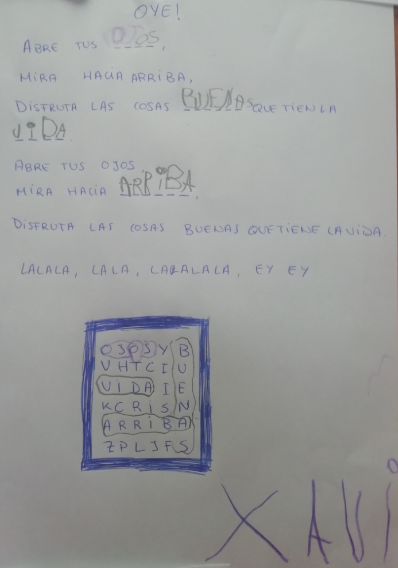 OYE!
ABRE TUS OJOS,
MIRA HACIA ARRIBA,
DISFRUTA LAS COSAS BUENAS QUE TIEN LA
VIDA.
ABRE TUS OJOS,
MIRA HACIA ARRIBA,
DISFRUTA LAS COSAS BUENAS QUE TIENE LA VIDA
LALALA, LALA, LARALALA, EY EY
OJOSYB
VHTCIU
VIDAIE
KCRISN
ARRIBA
ZPLJFS
XAVI